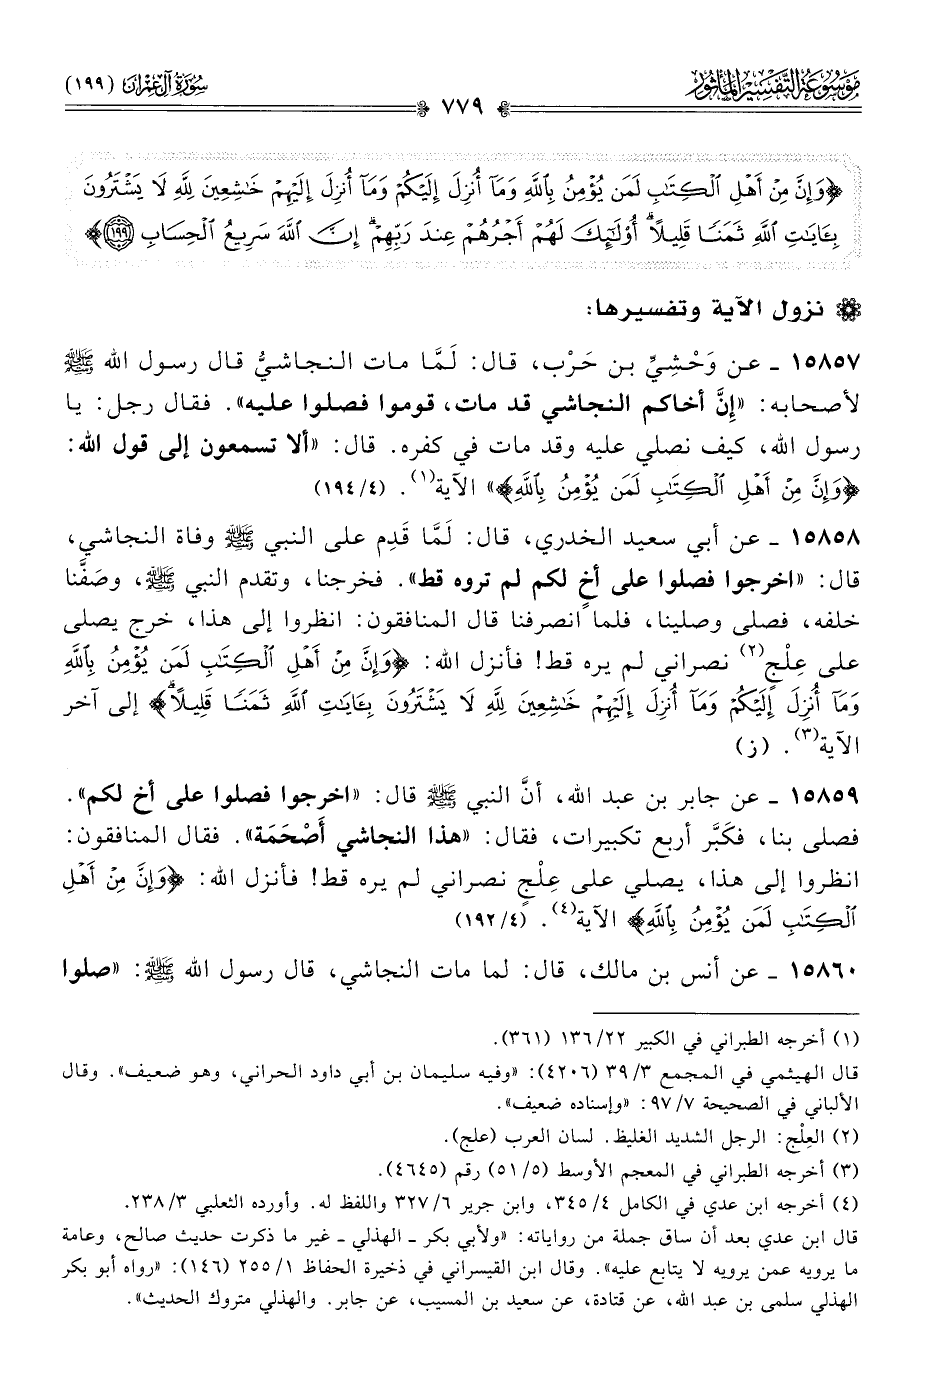 موسوعة التفسير المأثور
سورة آل عمران (١٩٩)
٧٧٩
﴿وَإِنَّ مِنْ أَهْلِ ٱلْكِتَٰبِ لَمَن يُؤْمِنُ بِٱللَّهِ وَمَآ أُنزِلَ إِلَيْكُمْ وَمَآ أُنزِلَ إِلَيْهِمْ خَٰشِعِينَ لِلَّهِ لَا يَشْتَرُونَ
بِـَٔايَٰتِ ٱللَّهِ ثَمَنًا قَلِيلًا ۗ أُو۟لَٰٓئِكَ لَهُمْ أَجْرُهُمْ عِندَ رَبِّهِمْ ۗ إِنَّ ٱللَّهَ سَرِيعُ ٱلْحِسَابِ ١٩٩﴾
نزول الآية وتفسيرها:
١٥٨٥٧ ـ عن وَحْشِيِّ بن حَرْب، قال: لَمَّا مات النجاشيُّ قال رسول الله ﷺ
لأصحابه: «إنَّ أخاكم النجاشي قد مات، قوموا فصلوا عليه». فقال رجل: يا
رسول الله، كيف نصلي عليه وقد مات في كفره. قال: «ألا تسمعون إلى قول الله:
﴿وَإِنَّ مِنْ أَهْلِ ٱلْكِتَٰبِ لَمَن يُؤْمِنُ بِٱللَّهِ﴾» الآية(١). (١٩٤/٤)
١٥٨٥٨ ـ عن أبي سعيد الخدري، قال: لَمَّا قَدِم على النبي ﷺ وفاة النجاشي،
قال: «اخرجوا فصلوا على أخٍ لكم لم تروه قط». فخرجنا، وتقدم النبي ﷺ، وصَفَّنا
خلفه، فصلى وصلينا، فلما انصرفنا قال المنافقون: انظروا إلى هذا، خرج يصلى
على عِلْجٍ(٢) نصراني لم يره قط! فأنزل الله: ﴿وَإِنَّ مِنْ أَهْلِ ٱلْكِتَٰبِ لَمَن يُؤْمِنُ بِٱللَّهِ
وَمَآ أُنزِلَ إِلَيْكُمْ وَمَآ أُنزِلَ إِلَيْهِمْ خَٰشِعِينَ لِلَّهِ لَا يَشْتَرُونَ بِـَٔايَٰتِ ٱللَّهِ ثَمَنًا قَلِيلًا ۗ﴾ إلى آخر
الآية(٣). (ز)
١٥٨٥٩ ـ عن جابر بن عبد الله، أنَّ النبي ﷺ قال: «اخرجوا فصلوا على أخ لكم».
فصلى بنا، فكَبَّر أربع تكبيرات، فقال: «هذا النجاشي أَصْحَمَة». فقال المنافقون:
انظروا إلى هذا، يصلي على عِلْجٍ نصراني لم يره قط! فأنزل الله: ﴿وَإِنَّ مِنْ أَهْلِ
ٱلْكِتَٰبِ لَمَن يُؤْمِنُ بِٱللَّهِ﴾ الآية(٤). (١٩٢/٤)
١٥٨٦٠ ـ عن أنس بن مالك، قال: لما مات النجاشي، قال رسول الله ﷺ: «صلوا
(١) أخرجه الطبراني في الكبير ١٣٦/٢٢ (٣٦١).
قال الهيثمي في المجمع ٣٩/٣ (٤٢٠٦): «وفيه سليمان بن أبي داود الحراني، وهو ضعيف». وقال
الألباني في الصحيحة ٩٧/٧: «وإسناده ضعيف».
(٢) العِلْج: الرجل الشديد الغليظ. لسان العرب (علج).
(٣) أخرجه الطبراني في المعجم الأوسط (٥١/٥) رقم (٤٦٤٥).
(٤) أخرجه ابن عدي في الكامل ٣٤٥/٤، وابن جرير ٣٢٧/٦ واللفظ له. وأورده الثعلبي ٢٣٨/٣.
قال ابن عدي بعد أن ساق جملة من رواياته: «ولأبي بكر ـ الهذلي ـ غير ما ذكرت حديث صالح، وعامة
ما يرويه عمن يرويه لا يتابع عليه». وقال ابن القيسراني في ذخيرة الحفاظ ٢٥٥/١ (١٤٦): «رواه أبو بكر
الهذلي سلمى بن عبد الله، عن قتادة، عن سعيد بن المسيب، عن جابر. والهذلي متروك الحديث».